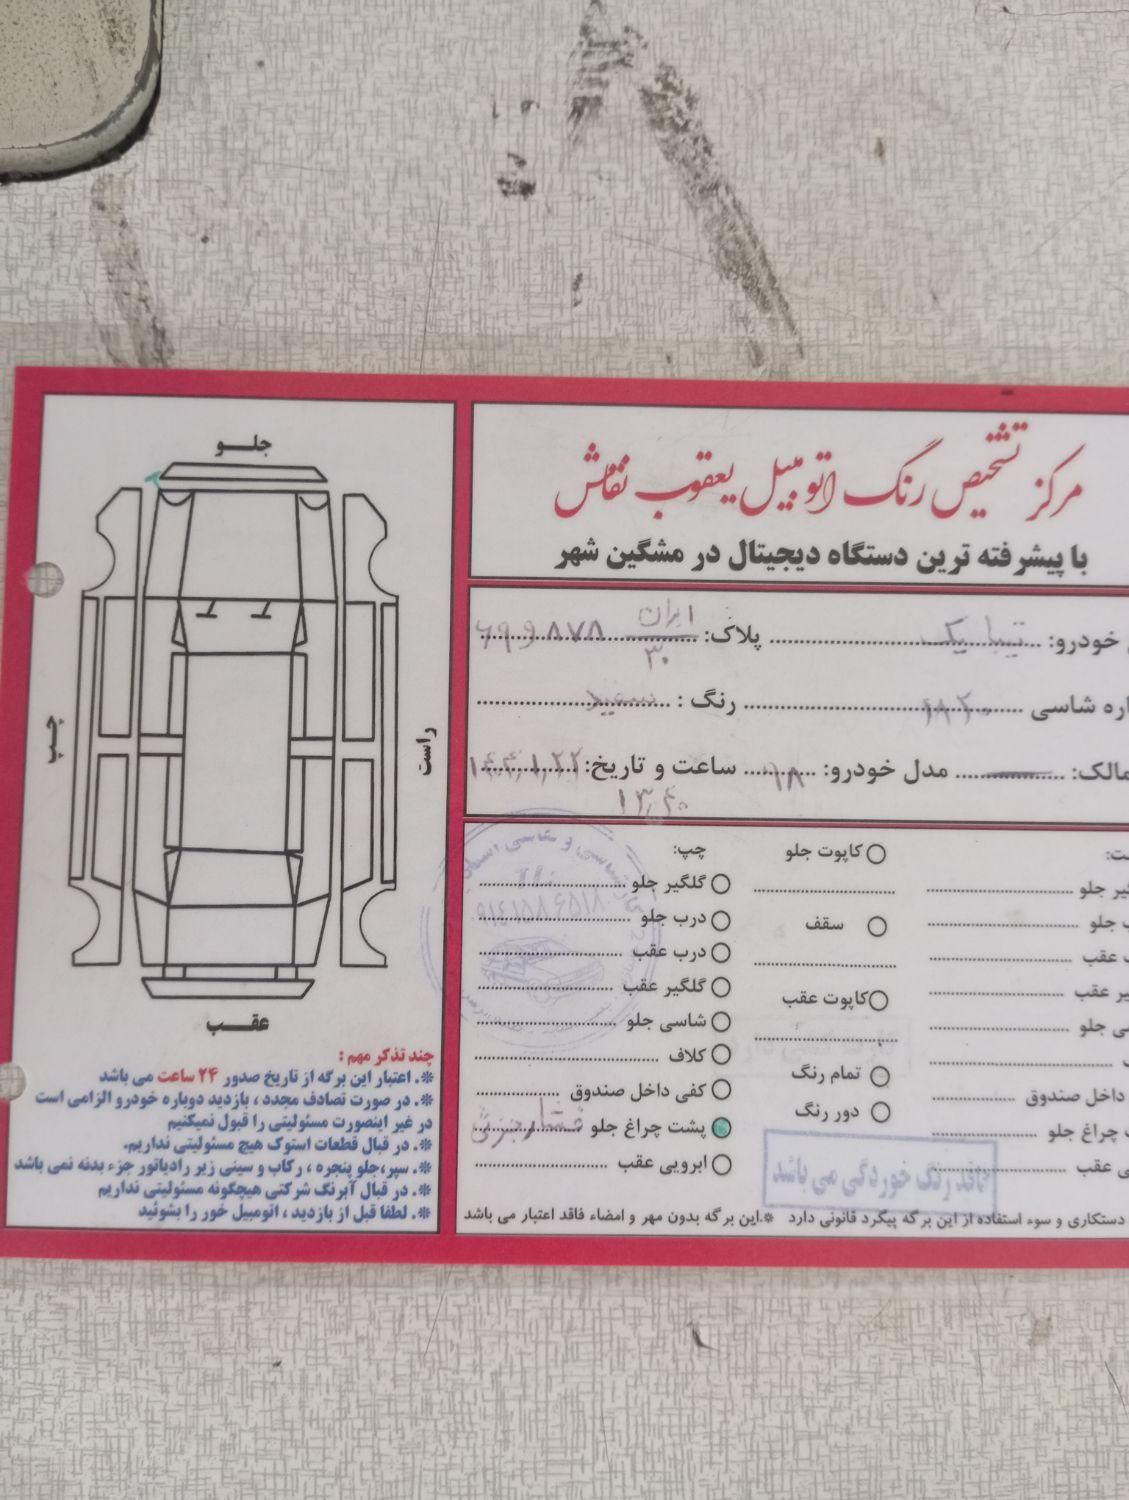 مرکز تشخیص رنگ اتومبیل یعقوب نقاش
با پیشرفته ترین دستگاه دیجیتال در مشگین شهر
خودرو: تیبا یک پلاک: ایران ۳۰
شاسی ۱۸۲۰ رنگ : سفید
مالک: مدل خودرو: ۱۸ ساعت و تاریخ:
۱۳,۴۰
کاپوت جلو
سقف
کاپوت عقب
تمام رنگ
دور رنگ
چپ:
گلگیر جلو
درب جلو
درب عقب
گلگیر عقب
شاسی جلو
کلاف
کفی داخل صندوق
پشت چراغ جلو فشار جزئی
ابرویی عقب
جلو
عقب
داخل صندوق
چراغ جلو
عقب
فاقد رنگ خوردگی می باشد
دستکاری و سوء استفاده از این برگه پیگرد قانونی دارد *.این برگه بدون مهر و امضاء فاقد اعتبار می باشد
جلو
چپ
راست
عقب
چند تذکر مهم :
*. اعتبار این برگه از تاریخ صدور ۲۴ ساعت می باشد
*. در صورت تصادف مجدد ، بازدید دوباره خودرو الزامی است
در غیر اینصورت مسئولیتی را قبول نمیکنیم
*. در قبال قطعات استوک هیچ مسئولیتی نداریم.
*. سپر،جلو پنجره ، رکاب و سینی زیر رادیاتور جزء بدنه نمی باشد
*. در قبال آبرنگ شرکتی هیچگونه مسئولیتی نداریم
*. لطفا قبل از بازدید ، اتومبیل خور را بشوئید